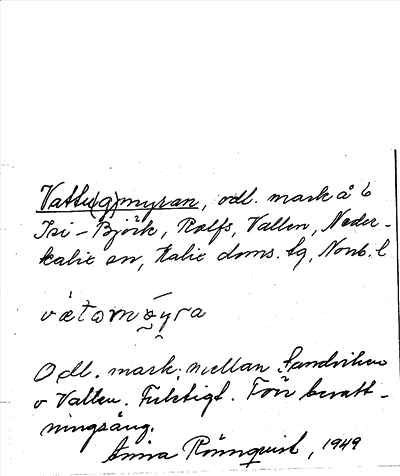 Vattu(g)myran, odl. mark å 6
Isi-Björk, Rolfs, Vallen, Neder-
kalix sn, Kalix doms. sg, Norrb. l
vætomyra
Odl. mark mellan Sandviken
o Vallen. Fuktigt. Förr bevatt-
ningsäng.
Anna Rönnquist, 1949